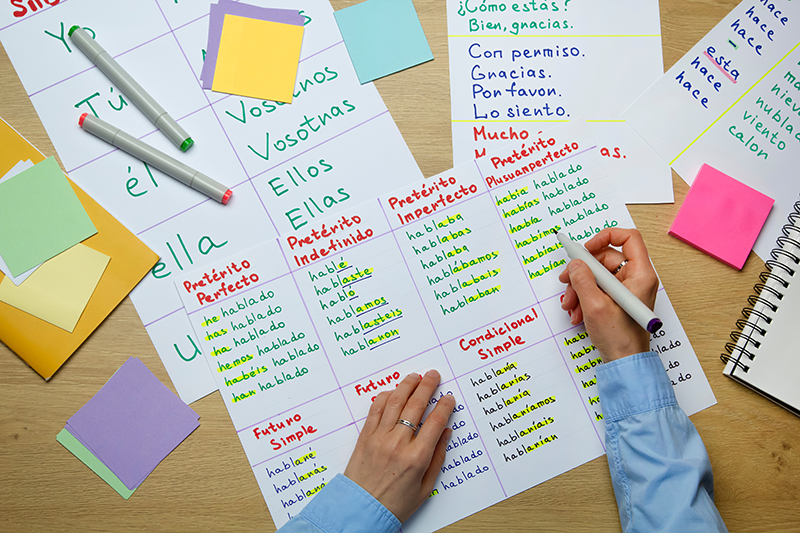 Yo
Tú
él
ella
Vosotras
Ellos
Ellas
¿Cómo estás?
Bien, gracias.
Con permiso.
Gracias.
Por favor.
Lo siento.
Mucho
hace
hace
hace
esta
hace
viento
calor
Pretérito
Perfecto
he hablado
has hablado
ha hablado
hemos hablado
habéis hablado
han hablado
Pretérito
Indefinido
hablé
hablaste
habló
hablamos
hablasteis
hablaron
Pretérito
Imperfecto
hablaba
hablabas
hablaba
hablábamos
hablabais
hablaban
Pretérito
Plusuanperfecto
había hablado
habías hablado
había hablado
habíamos hablado
Futuro
Simple
hablaré
hablarás
hablará
Futuro
hablado
hablado
hablado
Condicional
Simple
hablaría
hablarías
hablaría
hablaríamos
hablaríais
hablarían